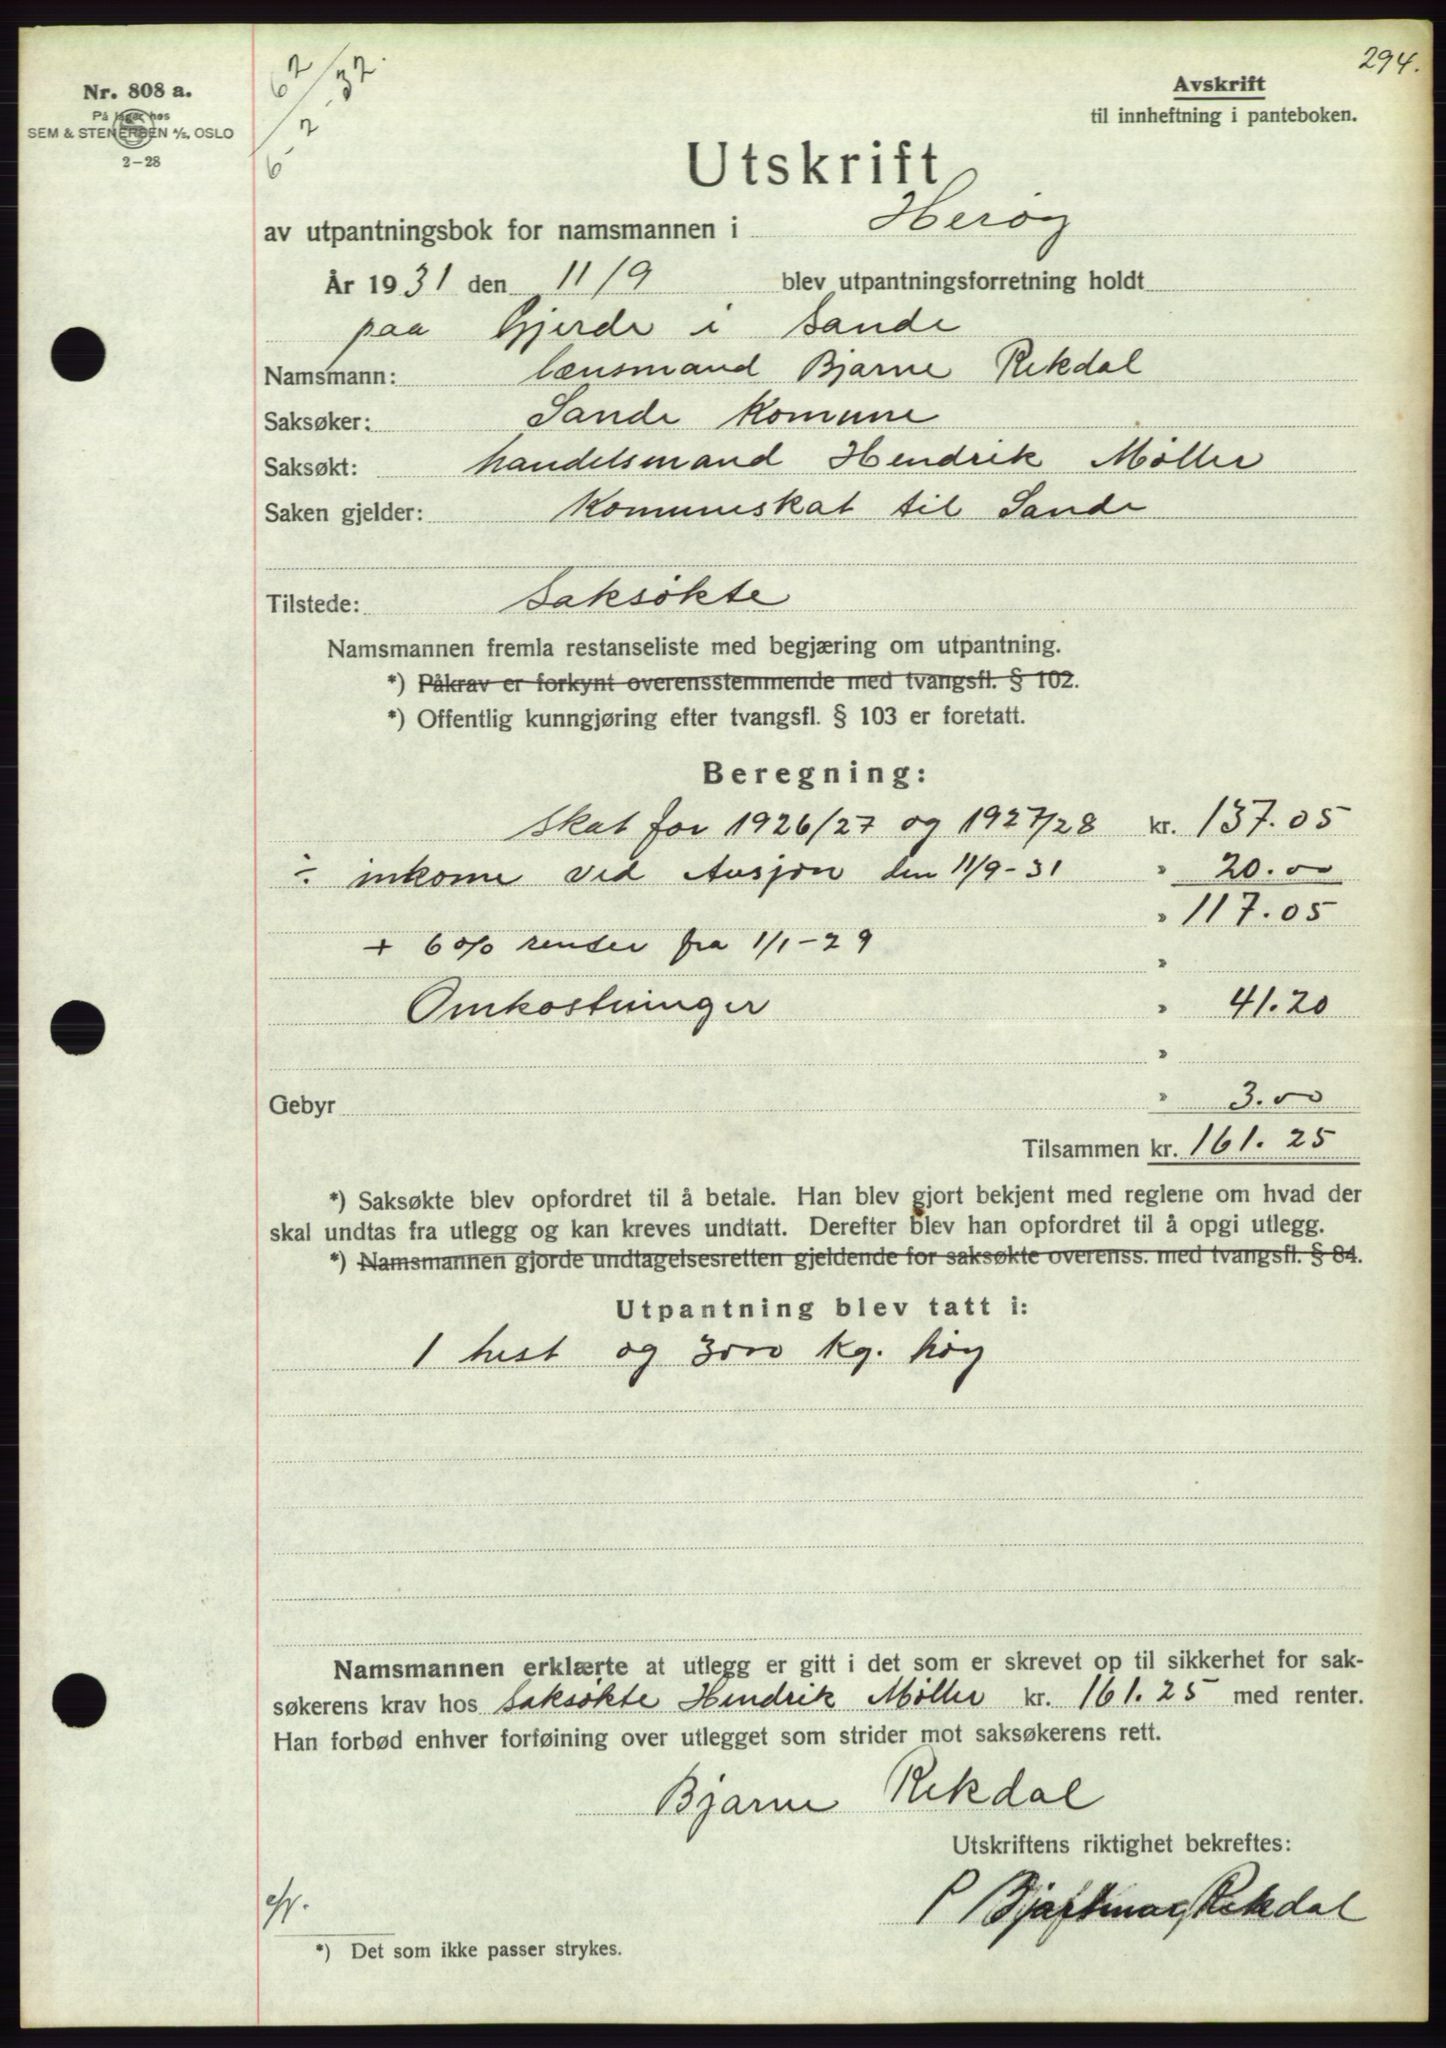 294.
Nr. 808 a.
På lager hos
SEM & STENERSEN A/S, OSLO
2-28
62/32.
6-2
Avskrift
til innheftning i panteboken.
Utskrift
av utpantningsbok for namsmannen i Herøy
År 1931 den 11/9 blev utpantningsforretning holdt
paa Gjerde i Sande
Namsmann: lænsmand Bjarne Rekdal
Saksøker: Sande Komune
Saksøkt: handelsmand Hendrik Møller
Saken gjelder: Komuneskat til Sande
Tilstede: Saksøkte
Namsmannen fremla restanseliste med begjæring om utpantning.
*) Påkrav er forkynt overensstemmende med tvangsfl. § 102.
*) Offentlig kunngjøring efter tvangsfl. § 103 er foretatt.
Beregning:
Skat for 1926/27 og 1927/28 kr. 137.05
÷ inkome ved Ausjon den 11/9-31 » 20.00
» 117.05
+ 6% renter fra 1/1-29 »
Omkostninger » 41.20
»
Gebyr » 3.00
Tilsammen kr. 161.25
*) Saksøkte blev opfordret til å betale. Han blev gjort bekjent med reglene om hvad der
skal undtas fra utlegg og kan kreves undtatt. Derefter blev han opfordret til å opgi utlegg.
*) Namsmannen gjorde undtagelsesretten gjeldende for saksøkte overenss. med tvangsfl. § 84.
Utpantning blev tatt i:
1 hest og 3000 kg. høy
Namsmannen erklærte at utlegg er gitt i det som er skrevet op til sikkerhet for sak-
søkerens krav hos Saksøkte Hendrik Møller kr. 161.25 med renter.
Han forbød enhver forføining over utlegget som strider mot saksøkerens rett.
Bjarne Rekdal
Utskriftens riktighet bekreftes:
Rekdal
*) Det som ikke passer strykes.